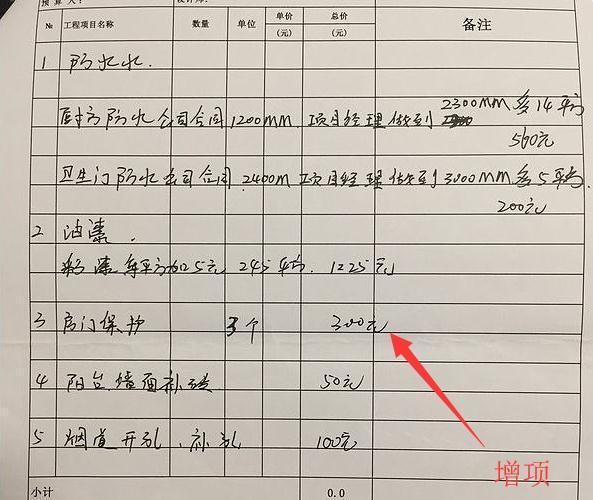 预 算 人: 设计师:
№ 工程项目名称 数量 单位 单价(元) 总价(元) 备注
1 防水水.
2300MM多14平方
厨房防水公司合同1200MM.项目经理做到
560元
卫生门防水公司合同.2400M项目经理做到3000MM多5平方.
200元
2 油漆.
彩漆每平方加5元 245平方. 1225元
3 房门保护 3个 300元
4 阳台.墙面补 50元
5 烟道开孔.补孔 100元
增项
小计 0.0